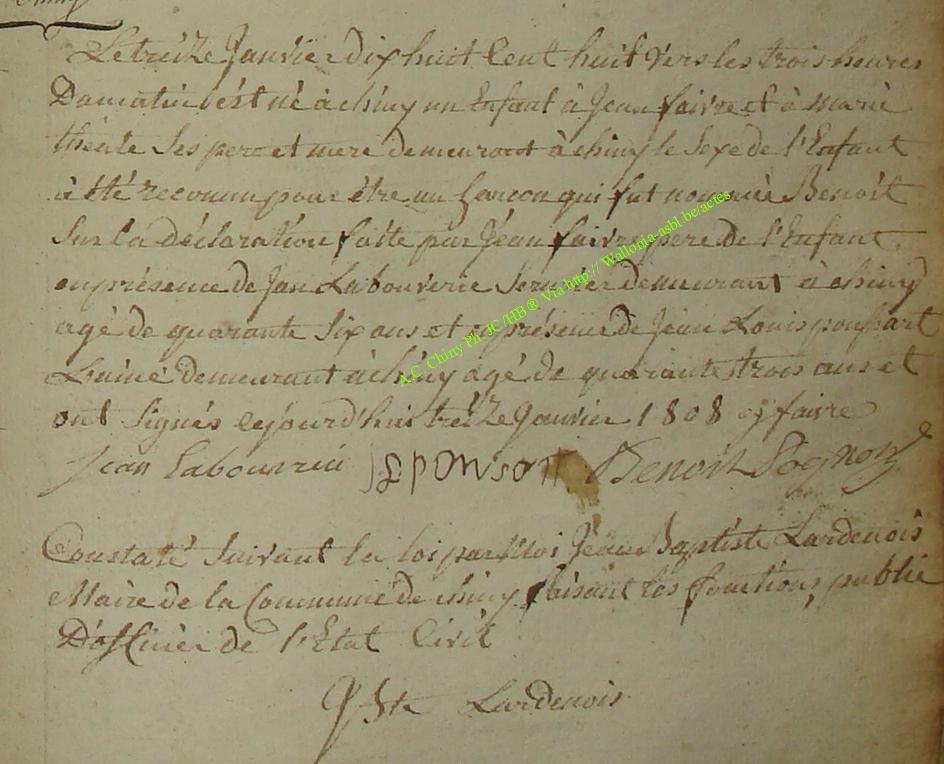 Le treize Janvier dix huit Cent huit vers les trois heures
Du matin est né à chiny un Enfant à Jean faivre et à marie
thérèse Ses pere et mere demeurant à chiny le Sexe de l'Enfant
à été reconnu pour être un Garcon qui fut nommé Benoit
Sur la Déclaration faite par Jean faivre pere de l'Enfant
en présence de Jean Labouverie demeurant à chiny
agé de quarante Six ans et en présence de Jean Louis
L'ainé demeurant à chiny agé de quarante trois ans et
ont Signés cejourd'hui treize Janvier 1808 J faivre
Jean Labouverie JLPONSART Benoit Pognon
A.C Chiny Ph JC /HB ® Via http:// Wallonia-asbl.be/actes
Constaté Suivant la loi par Moi Jean Baptiste Lardenois
Maire de la Commune de chiny faisant les fonctions public
D'officier de l'Etat Civil
J Bte Lardenois